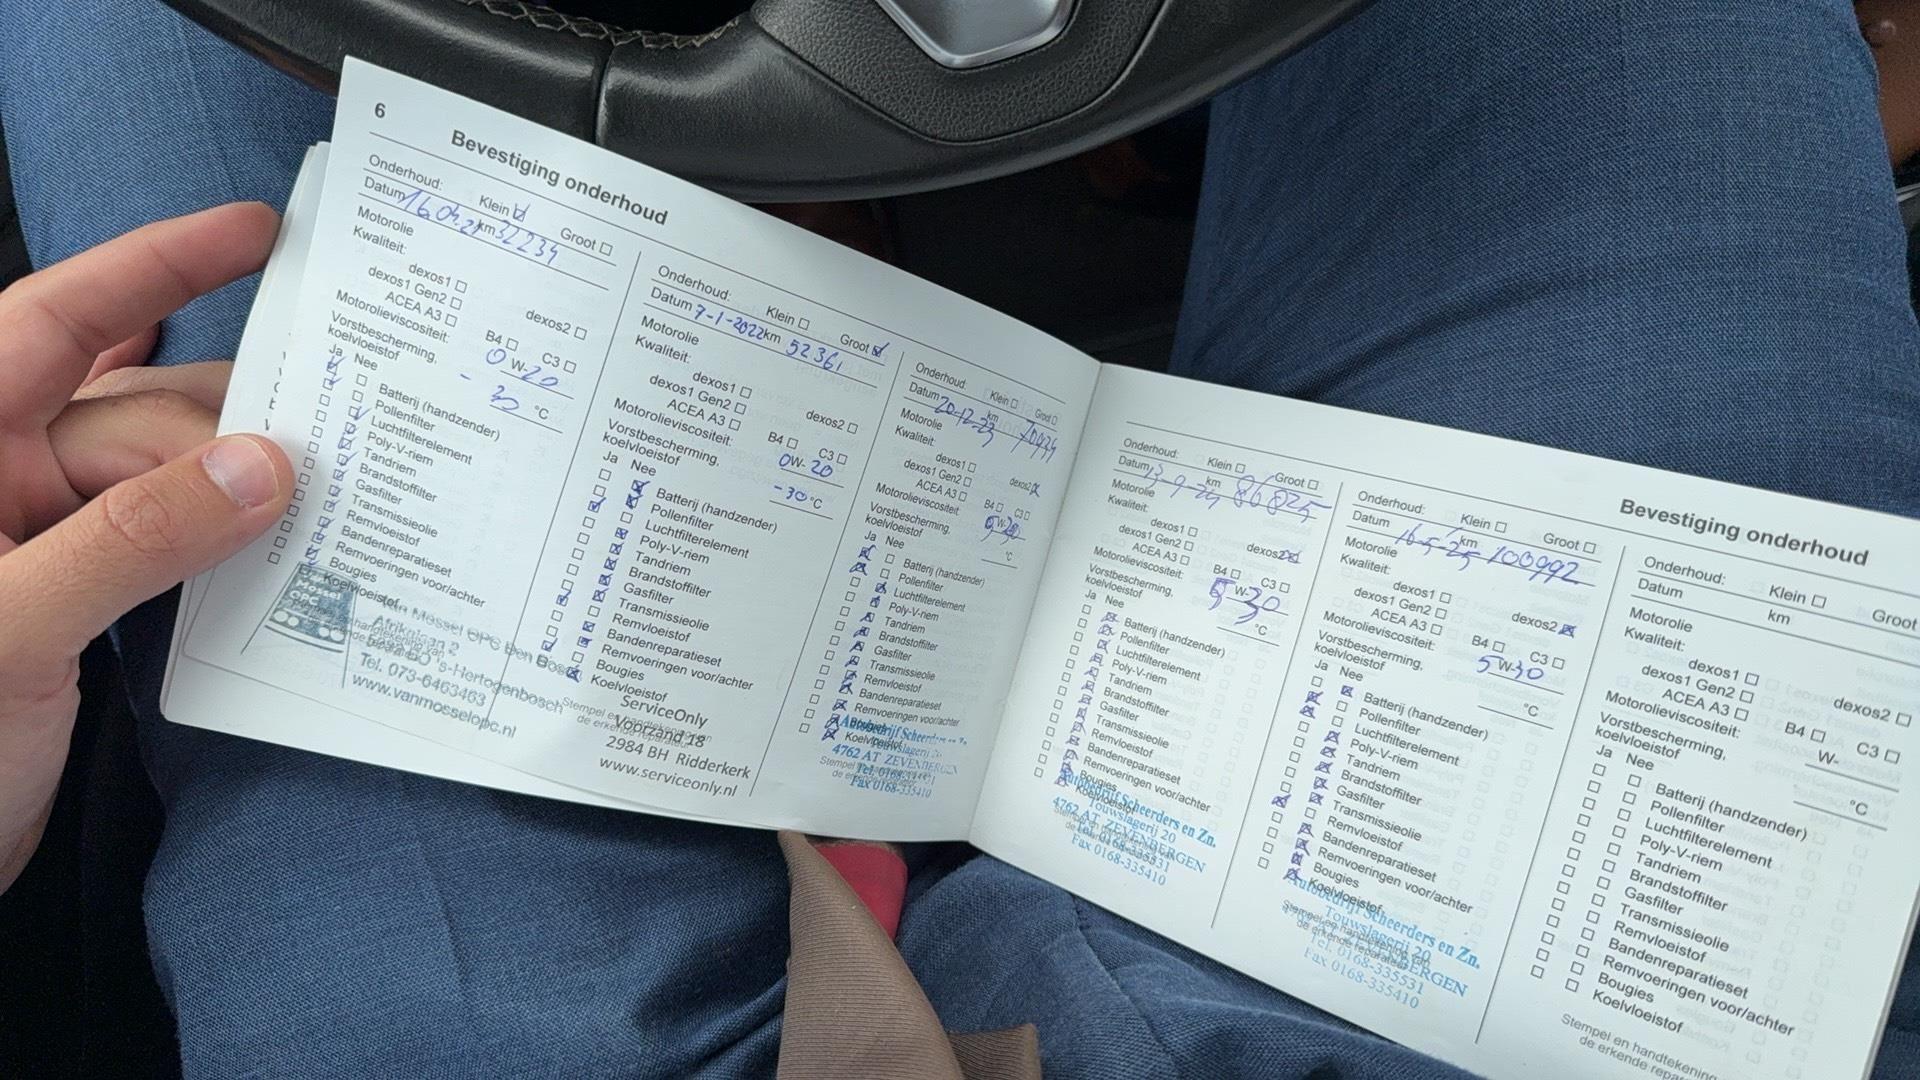 6
Bevestiging onderhoud
Onderhoud: Klein ☑ Groot ☐
Datum 16.04.21 km 32234
Motorolie
Kwaliteit:
dexos1 ☐
dexos1 Gen2 ☐ dexos2 ☐
ACEA A3 ☐ B4 ☐ C3 ☐
Motorolieviscositeit: 0 W- 20
Vorstbescherming,
koelvloeistof - 30 °C
Ja Nee
Batterij (handzender)
Pollenfilter
Luchtfilterelement
Poly-V-riem
Tandriem
Brandstoffilter
Gasfilter
Transmissieolie
Remvloeistof
Bandenreparatieset
Remvoeringen voor/achter
Bougies
Koelvloeistof
Van Mossel OPC Den Bosch
Afrikalaan 2
's-Hertogenbosch
Tel. 073-6463463
www.vanmosselopc.nl
Onderhoud: Klein ☐ Groot ☑
Datum 7-1-2022 km 52361
Motorolie
Kwaliteit:
dexos1 ☐
dexos1 Gen2 ☐ dexos2 ☐
ACEA A3 ☐ B4 ☐ C3 ☐
Motorolieviscositeit: 0W-20
Vorstbescherming,
koelvloeistof -30 °C
Ja Nee
Batterij (handzender)
Pollenfilter
Luchtfilterelement
Poly-V-riem
Tandriem
Brandstoffilter
Gasfilter
Transmissieolie
Remvloeistof
Bandenreparatieset
Remvoeringen voor/achter
Bougies
Koelvloeistof
ServiceOnly
Voorzand 18
2984 BH Ridderkerk
www.serviceonly.nl
Onderhoud: Klein ☐ Groot ☐
Datum 20-12-23 km 70934
Motorolie
Kwaliteit:
dexos1 ☐
dexos1 Gen2 ☐ dexos2 ☒
ACEA A3 ☐ B4 ☐ C3 ☐
Motorolieviscositeit: W-
Vorstbescherming,
koelvloeistof °C
Ja Nee
Batterij (handzender)
Pollenfilter
Luchtfilterelement
Poly-V-riem
Tandriem
Brandstoffilter
Gasfilter
Transmissieolie
Remvloeistof
Bandenreparatieset
Remvoeringen voor/achter
Bougies
Koelvloeistof
Autobedrijf Scheerders
Touwslagerij
4762 AT ZEVENBERGEN
Tel. 0168-
Fax 0168-335410
Bevestiging onderhoud
Onderhoud: Klein ☐ Groot ☐
Datum 13-9-24 km 86825
Motorolie
Kwaliteit:
dexos1 ☐
dexos1 Gen2 ☐ dexos2 ☒
ACEA A3 ☐ B4 ☐ C3 ☐
Motorolieviscositeit: 5 W-30
Vorstbescherming,
koelvloeistof °C
Ja Nee
Batterij (handzender)
Pollenfilter
Luchtfilterelement
Poly-V-riem
Tandriem
Brandstoffilter
Gasfilter
Transmissieolie
Remvloeistof
Bandenreparatieset
Remvoeringen voor/achter
Bougies
Koelvloeistof
Autobedrijf Scheerders en Zn.
Touwslagerij 20
4762 AT ZEVENBERGEN
Tel. 0168-335531
Fax 0168-335410
Onderhoud: Klein ☐ Groot ☐
Datum 16-5-25 km 100992
Motorolie
Kwaliteit:
dexos1 ☐
dexos1 Gen2 ☐ dexos2 ☒
ACEA A3 ☐ B4 ☐ C3 ☐
Motorolieviscositeit: 5 W-30
Vorstbescherming,
koelvloeistof °C
Ja Nee
Batterij (handzender)
Pollenfilter
Luchtfilterelement
Poly-V-riem
Tandriem
Brandstoffilter
Gasfilter
Transmissieolie
Remvloeistof
Bandenreparatieset
Remvoeringen voor/achter
Bougies
Koelvloeistof
Autobedrijf Scheerders en Zn.
Touwslagerij 20
Tel. 0168-335531
Fax 0168-335410
Onderhoud: Klein ☐ Groot
Datum km
Motorolie
Kwaliteit:
dexos1 ☐
dexos1 Gen2 ☐ dexos2 ☐
ACEA A3 ☐ B4 ☐ C3 ☐
Motorolieviscositeit: W-
Vorstbescherming,
koelvloeistof °C
Ja Nee
Batterij (handzender)
Pollenfilter
Luchtfilterelement
Poly-V-riem
Tandriem
Brandstoffilter
Gasfilter
Transmissieolie
Remvloeistof
Bandenreparatieset
Remvoeringen voor/achter
Bougies
Koelvloeistof
Stempel en handtekening
de erkende